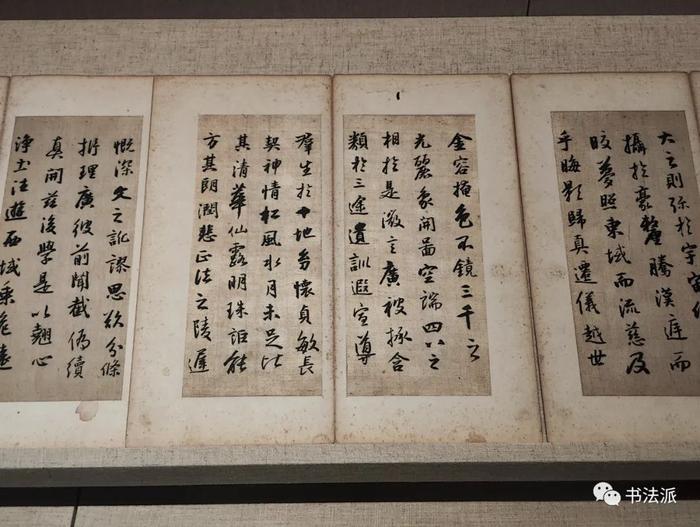 大之則弥於宇宙
攝於豪氂騰漢庭而
皎夢照東域而流慈及
乎晦影歸真遷儀越世
金容掩色不鏡三千之
光麗象開圖空端四八之
相於是微言廣被拯含
類於三途遺訓遐宣導
羣生於十地幼懷貞敏長
契神情松風水月未足比
其清華仙露明珠詎能
方其朗潤悲正法之陵遲
慨深文之訛謬思欲分條
析理廣彼前聞截偽續
真開茲後學是以翹心
淨土往遊西域乘危遠
书法派